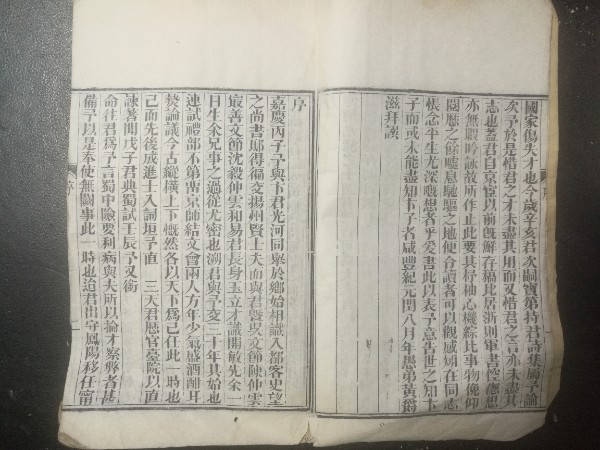 國家傷失才也今歲辛亥君次嗣寶第持君詩集屬予論
次予於是惜君之才未盡其用而又惜君之言亦未盡其
志也蓋君自京宦以前旣解存稿比居浙則軍書倥傯想
亦無暇吟詠故所作止此要其杼軸心機綜比事物俛仰
閱歷之餘噓息馳驅之地便合讀者可以觀感焉在同志
悵念平生尤深慨想者乎爰書此以表予意告世之知卞
子而或未能盡知卞子者咸豐紀元閏八月年愚弟黃爵
滋拜譔
序
序
嘉慶丙子予與卞君光河同舉於鄉始相識入都客史望
之尚書邸得徧交揚州賢士夫而與君曁吳文節陳仲雲
最善文節沈毅仲雲和易君長身玉立才識開敏先余一
日生余兄事之過從尤密也溯君與予交三十年其始也
連試禮部不第曹京師結文會兩人方年少氣盛酒酣耳
熱論議今古縱橫上下慨然各以天下爲己任此一時也
已而先後成進士入詞垣予直 三天君歷官臺院以直
諫著聞戊子君典蜀試壬辰予又銜
命往君爲予言蜀中險要利病與夫所以掄才察弊者甚
備予以是奉使無闕事此一時也迨君出守鳳陽移任甯
序